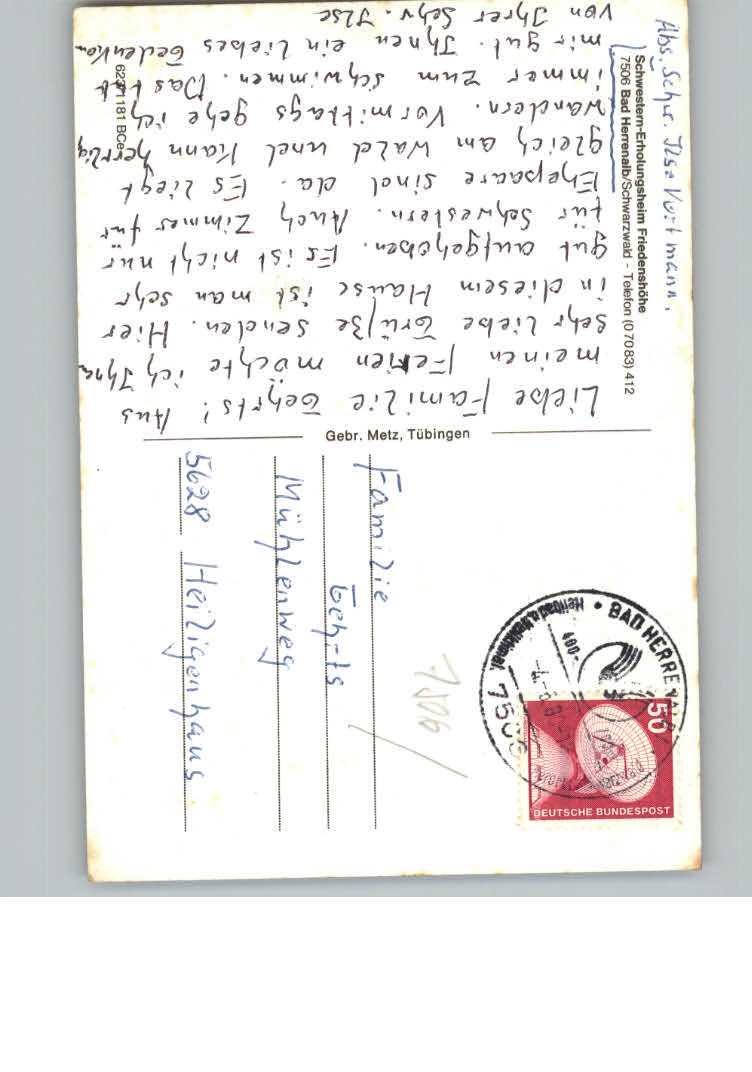 Schwestern-Erholungsheim Friedenshöhe
7506 Bad Herrenalb/Schwarzwald - Telefon (0 70 83) 412
Abs. Schw. Ilse Vortmann.
Liebe Familie Gehrts! Aus
meinen Ferien möchte ich Ihnen
sehr liebe Grüße senden. Hier
in diesem Hause ist man sehr
gut aufgehoben. Es ist nicht nur
für Schwestern. Auch Zimmer für
Ehepaare sind da. Es liegt
gleich am Wald und kann herrlich
wandern. Vormittags gehe ich
immer zum schwimmen. Das tut
mir gut. Ihnen ein liebes Gedenken
von Ihrer Schw. Ilse
Gebr. Metz, Tübingen
Familie
Gehrts
Mühlenweg
5628 Heiligenhaus
7506
BAD HERRENALB
7506
50
DEUTSCHE BUNDESPOST